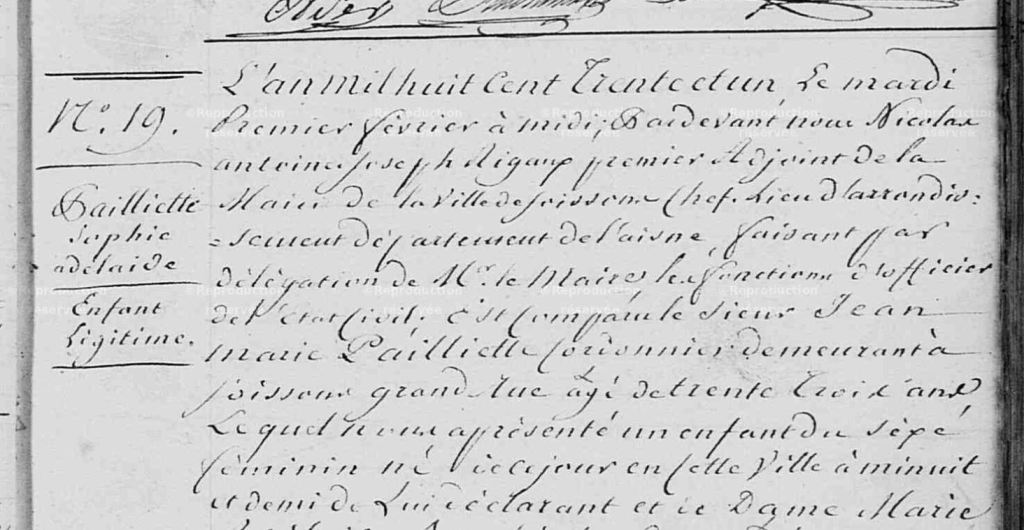 N.º 19.
Pailliette
Sophie
adélaïde
Enfant
Légitime.
L'an mil huit Cent Trente et un, Le mardi
Premier février à midi, Pardevant nous Nicolas
antoine Joseph Rigaux premier Adjoint de la
Mairie de la Ville de Soissons Chef-Lieu d'arrondis=
=sement département de l'aisne, faisant par
délégation de Mr. le Maire les fonctions d'officier
de l'Etat Civil; Est Comparu le Sieur Jean
marie Pailliette Cordonnier demeurant à
Soissons grand Rue âgé de trente Trois ans
Lequel nous a présenté un enfant du Séxe
féminin né ce jour en cette Ville à minuit
et demi de Lui déclarant et de Dame Marie